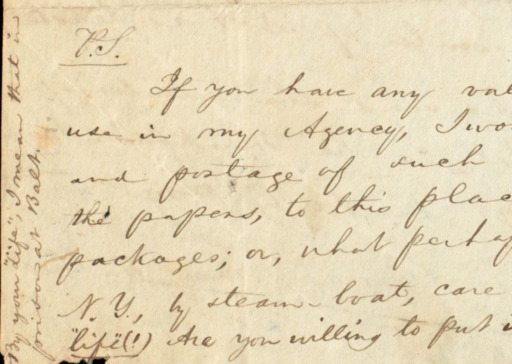 P.S.
If you have any val
use in my Agency, I wo
and postage of such
the papers, to this plac
packages; or, what perha
N.Y., by steam-boat, care
"life"(!) Are you willing to put
By your "life", I mean that in
prison at Balt.